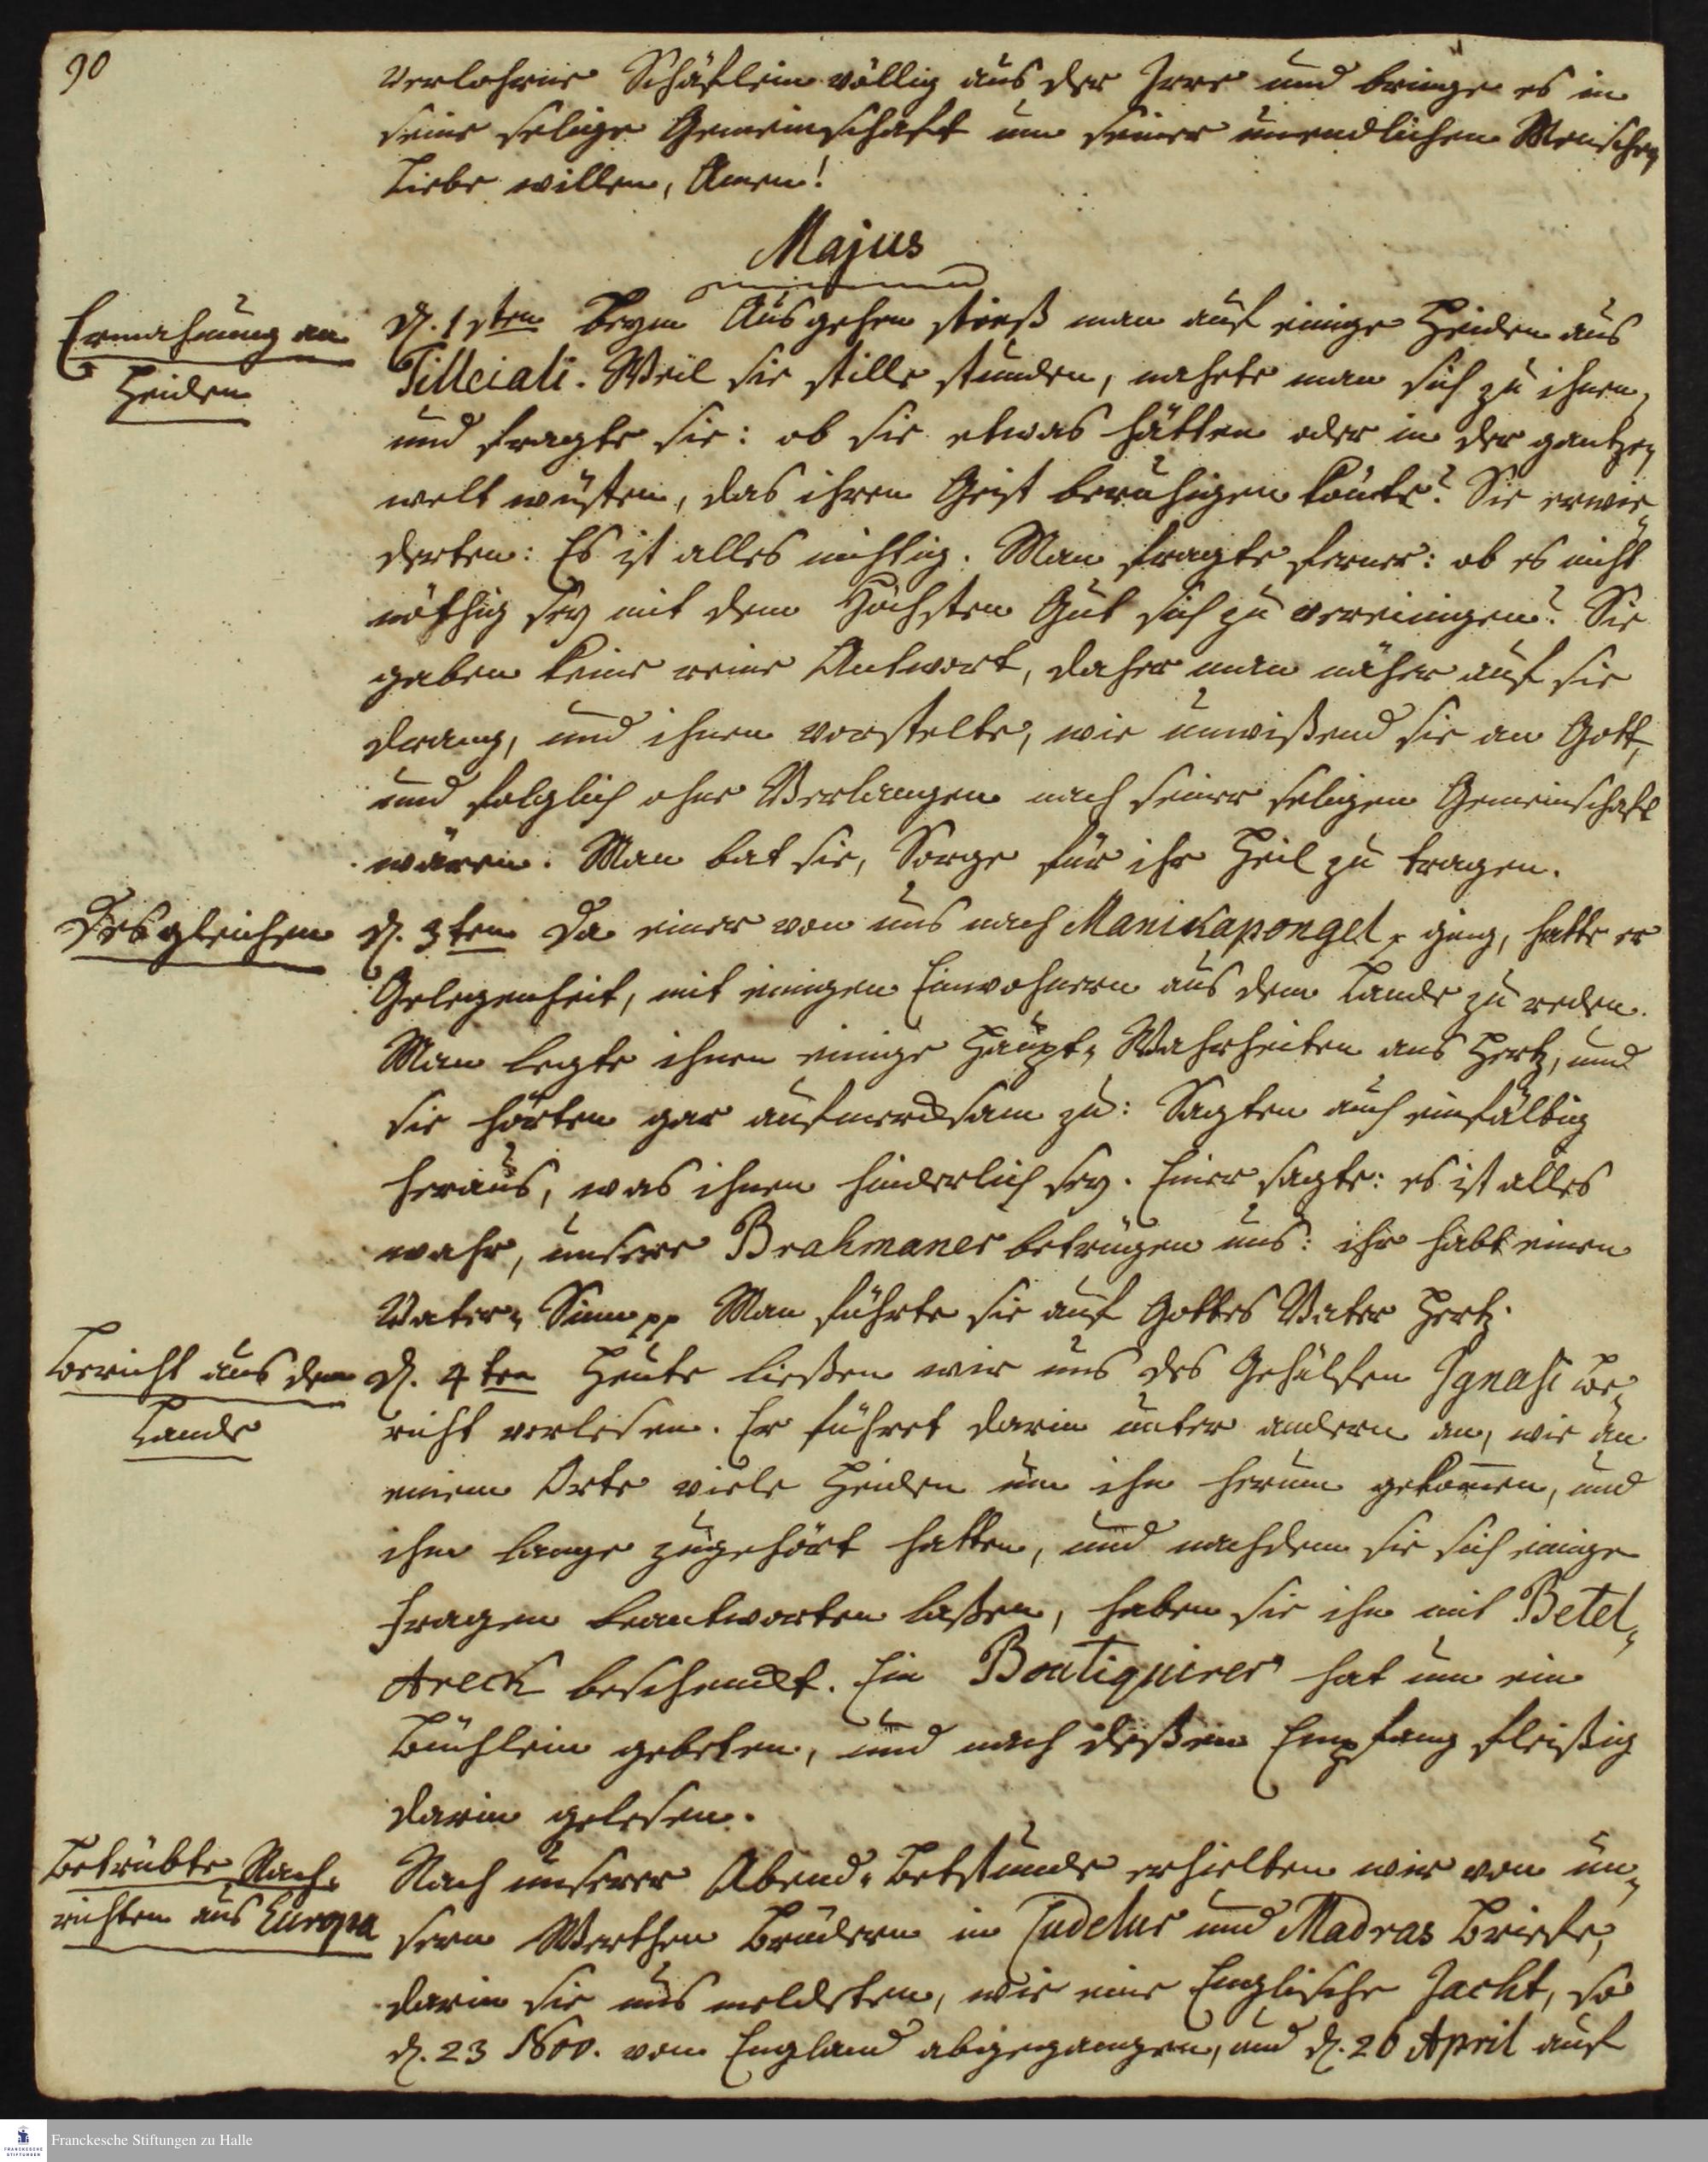 90
verlohrne Schäflein völlig aus der Irre und bringe es in
seine selige Gemeinschaft um seiner unendlichen Menschen
Liebe willen, Amen!
Majus
Ermahnung an
Heiden
d. 1sten Beym Ausgehen stieß man auf einige Heiden aus
Tilleiali. Weil sie stille stunden, nahete man sich zu ihnen,
und fragte sie: ob sie etwas hätten oder in der gantzen
welt wüsten, das ihren Geist beruhigen könte? Sie erwie„
derten: Es ist alles nichtig. Man fragte ferner: ob es nicht
nöthig sey mit dem Höchsten Gut sich zu vereinigen? Sie
gaben keine reine Antwort, daher man näher auf sie
drang, und ihnen vorstelte, wie unwißend sie an Gott,
und folglich ohne Verlangen nach seiner seligen Gemeinschaft
wären. Man bat sie, Sorge für ihr Heil zu tragen.
Desgleichen
d. 3ten Da einer von uns nach Manikapongel ging, hatte er
Gelegenheit, mit einigen Einwohnern aus dem Lande zu reden.
Man legte ihnen einige Haupt„ Wahrheiten ans Hertz, und
sie hörten gar aufmercksam zu: Sagten auch einfältig
heraus, was ihnen hinderlich sey. Einer sagte: es ist alles
wahr, unsere Brahmaner betrügen uns: ihr habt einen
Vater„ Sinn pp Man führte sie auf Gottes Vater Hertz.
Bericht aus dem
Lande
d. 4ten Heute ließen wir uns des Gehülfen Ignasi Be„
richt verlesen. Er führet darin unter andern an, wie an
einem Orte viele Heiden um ihn herum gekom̅en, und
ihm lange zugehört hatten, und nachdem sie sich einige
Fragen beantworten laßen, haben sie ihn mit Betel„
Areck beschenckt. Ein Boutiquirer hat um ein
Büchlein gebeten, und nach deßen Empfang fleißig
darin gelesen.
Betrübte Nach„
richten aus Europa
Nach unserer Abend„ Betstunde erhielten wir von un„
sern Werthen Brüdern in Cudelur und Madras Briefe,
darin sie uns meldeten, wie eine Englische Jacht, so
d. 23 Nov. von England abgegangen, und d. 26 April auf
FRANCKESCHE
STIFTUNGEN
Franckesche Stiftungen zu Halle